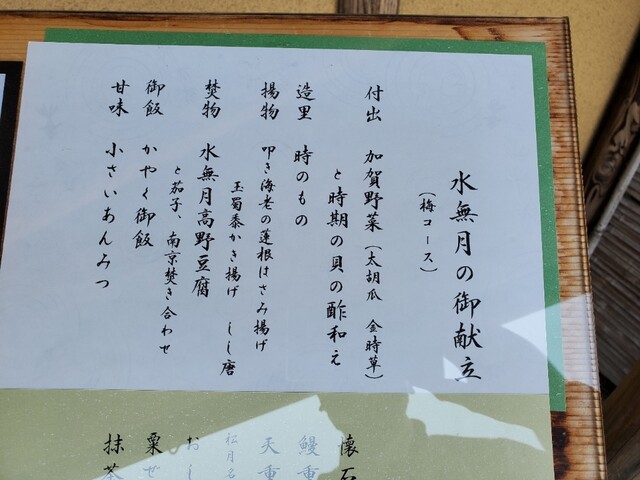 水無月の御献立
（梅コース）
付出 加賀野菜（太胡瓜 金時草）
と時期の貝の酢和え
造里 時のもの
揚物 叩き海老の蓮根はさみ揚げ
玉蜀黍かき揚げ しし唐
焚物 水無月高野豆腐
と茄子、南京焚き合わせ
御飯 かやく御飯
甘味 小さいあんみつ
懐石
鰻重
天重
松月名
おし
粟ぜ
抹茶